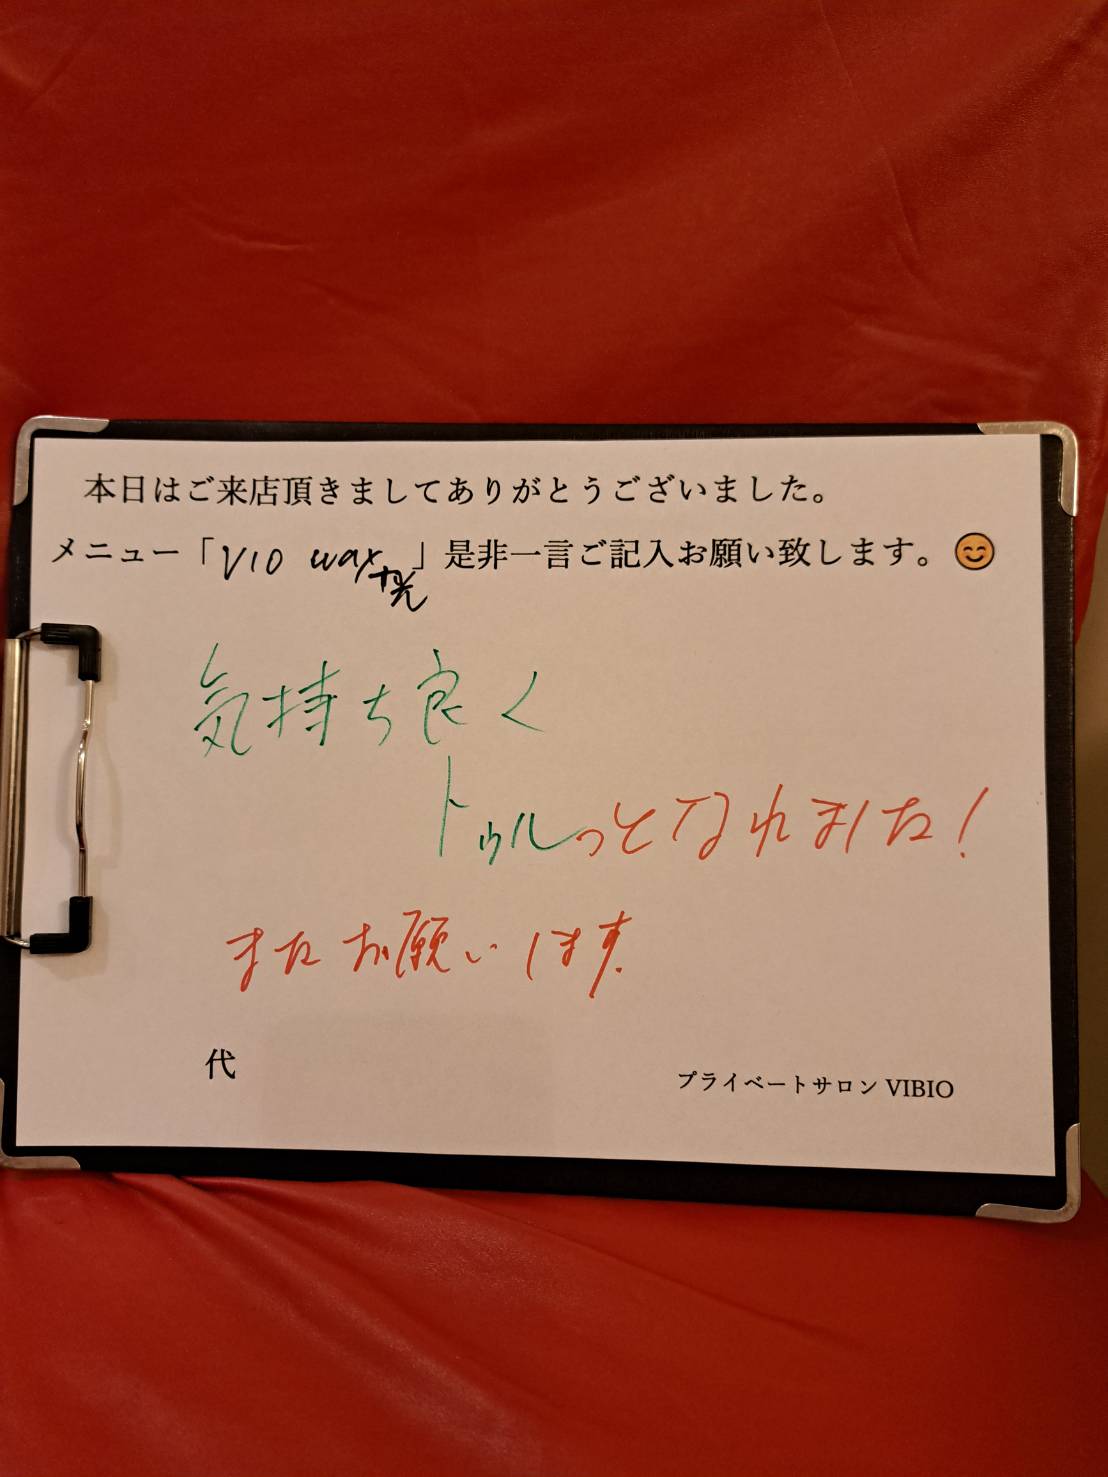 本日はご来店頂きましてありがとうございました。
メニュー「VIO wax+光」是非一言ご記入お願い致します。😊
気持ち良く
トゥルっとなれました!
またお願いします.
代
プライベートサロン VIBIO